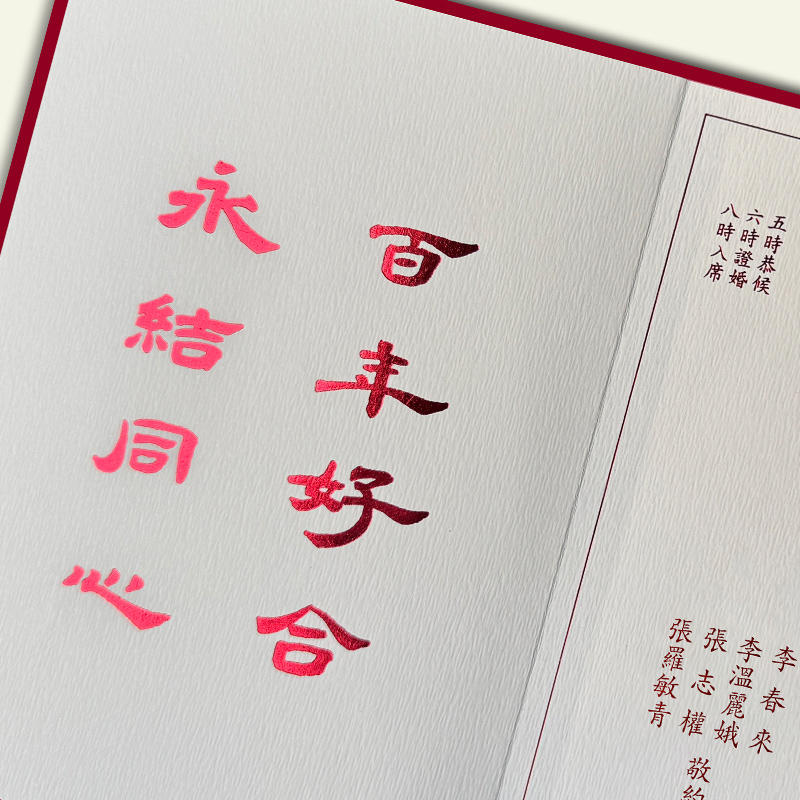 百年好合
永結同心
五時恭候
六時證婚
八時入席
李春來
李溫麗娥
張志權
張羅敏青
敬約